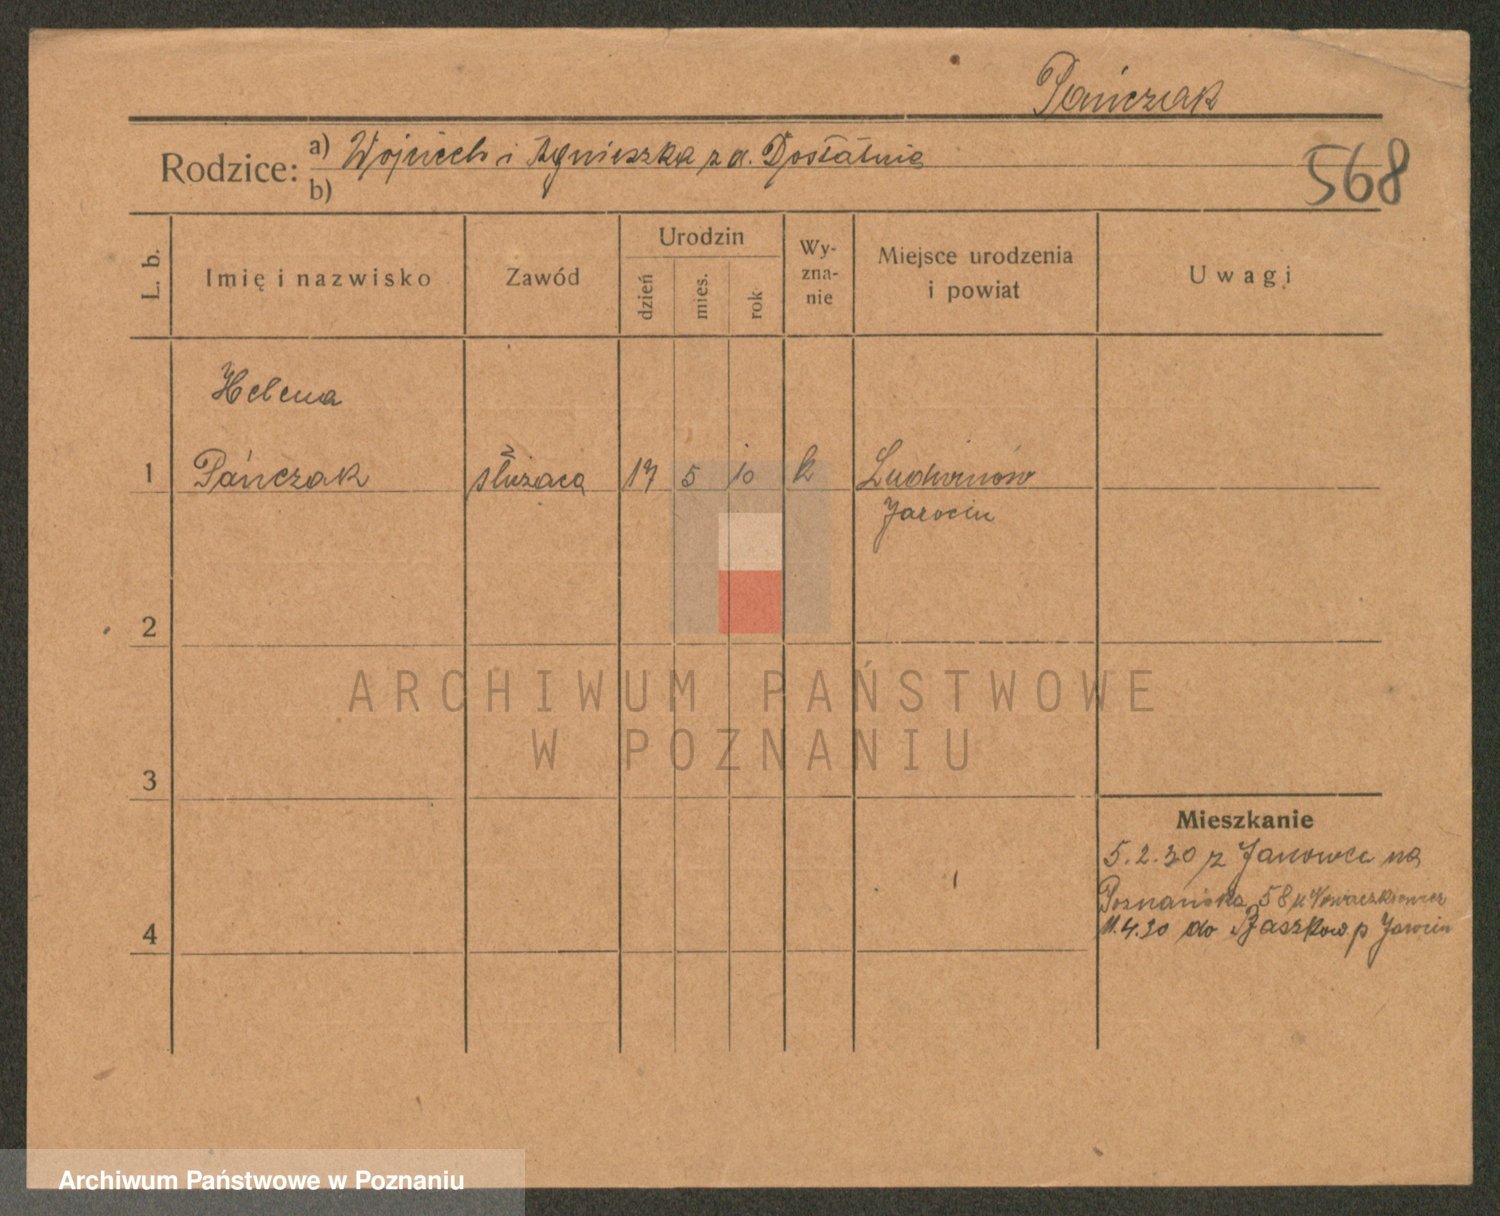 Pańczak
Rodzice: a) Wojciech i Agnieszka z d. Dostatnia
b)
568
L. b.
Imię i nazwisko
Zawód
Urodzin
dzień
mies.
rok
Wy-
zna-
nie
Miejsce urodzenia
i powiat
Uwagi
Helena
1 Pańczak służąca 17 5 10 k Ludwinów
Jarocin
2
ARCHIWUM PAŃSTWOWE
W POZNANIU
3
Mieszkanie
5.2.30 z Janowca na
Poznańska 58 u
4
11.4.30 do Raszkow p Jarocin
Archiwum Państwowe w Poznaniu